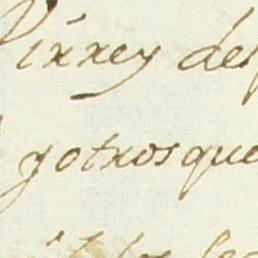 Virrey del
y otros que